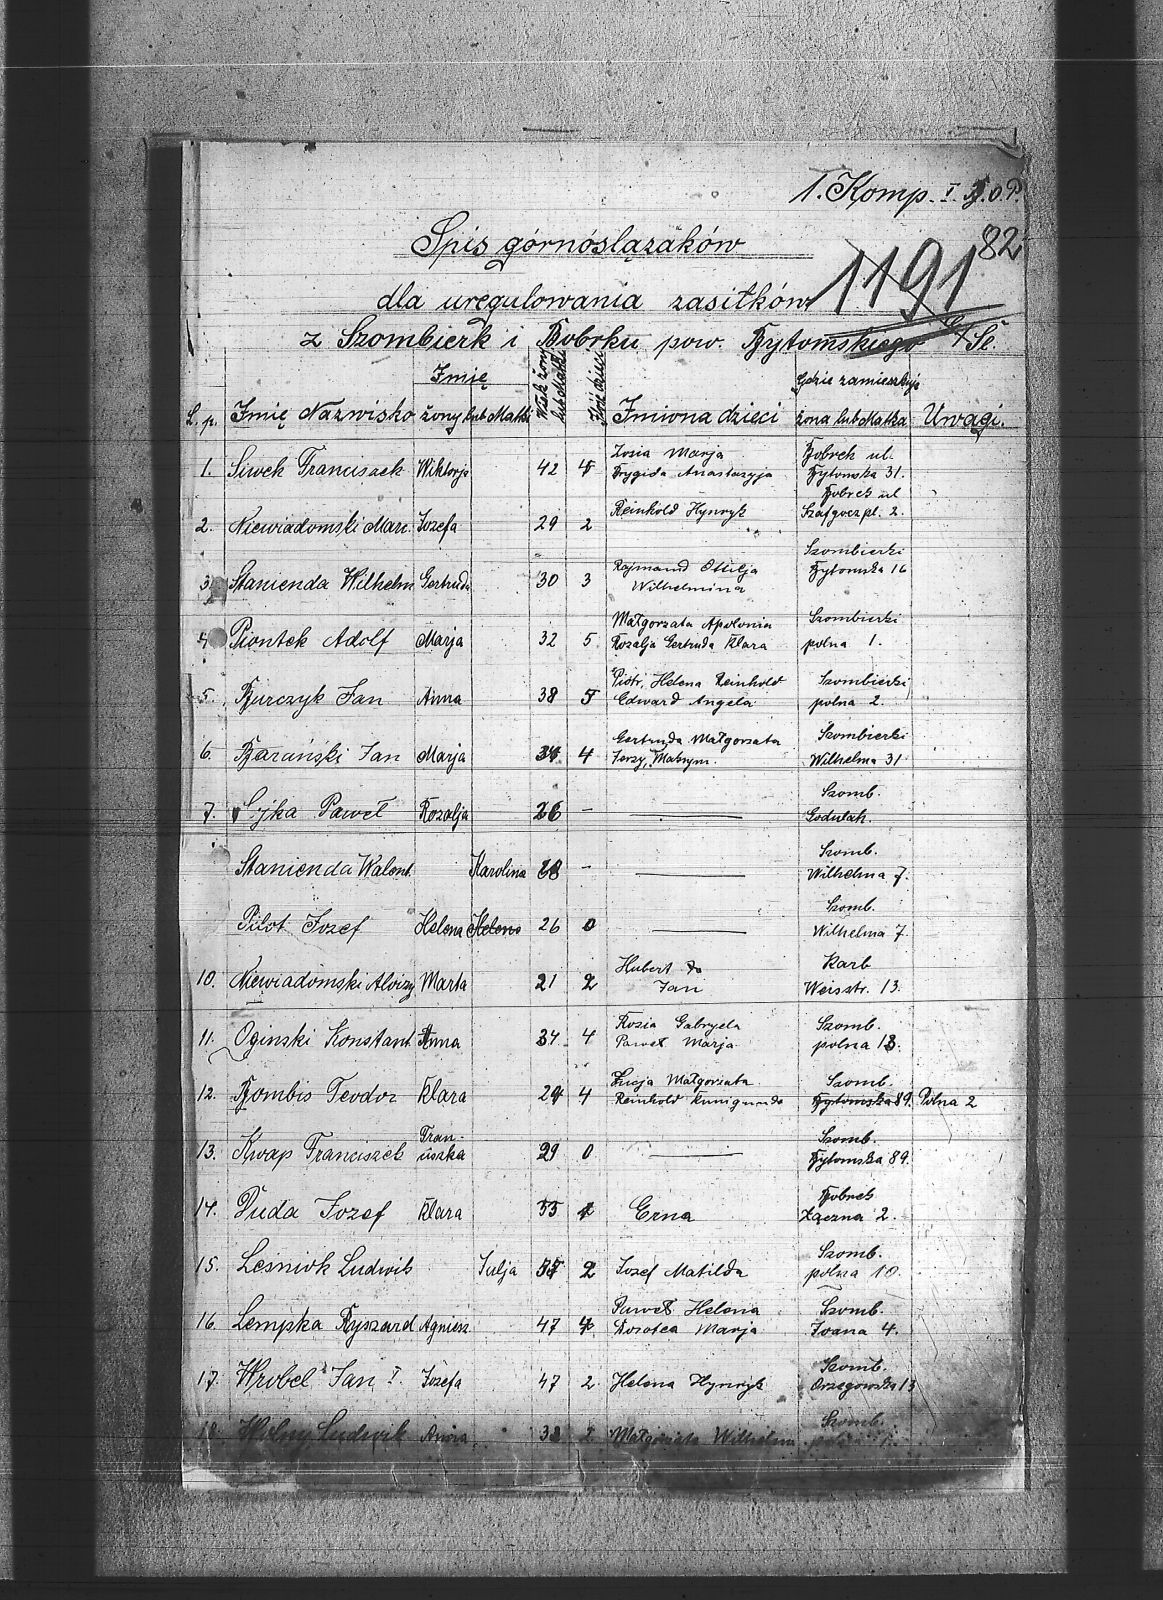 1. Komp. I. B.O.P.
82
Spis górnóslązaków
1191
dla uregulowania zasiłków
z Szombierk i Bobrku pow. Bytomskiego G/Śl.
L. p. Imię Nazwisko Imię żony lub Matki Wiek żony lub Matki Ilość dzieci Imiona dzieci Gdzie zamieszkuje żona lub Matka Uwagi.
1. Siwek Franciszek Wiktorja 42 4 Zosia Marja Brygida Anastazyja Bobrek ul. Bytomska 31.
2. Niewiadomski Marc. Jozefa 29 2 Reinhold Hynryk Bobrek ul Szafgoczpl. 2.
3. Stanienda Wilhelm Gertruda 30 3 Rajmund Otilja Wilhelmina Szombierki Bytomska 16
4. Piontek Adolf Marja 32 5 Małgorzata Apolonia Rozalja Gertruda Klara Szombierki polna 1.
5. Burczyk Jan Anna 38 5 Piotr Helena Reinhold Edward Angela Szombierki polna 2.
6. Barański Jan Marja 34 4 Gertruda Małgorzata Jerzy, Maksym. Szombierki Wilhelma 31
7. Sojka Paweł Rozalja 26 – — Szomb. Godulah.
Stanienda Walent. Karolina 68 – — Szomb. Wilhelma 7.
Pilot Jozef Helena Helena 26 0 — Szomb. Wilhelma 7.
10. Niewiadomski Alojzy Marta 21 2 Hubert Jan Karb Weisstr. 13.
11. Oginski Konstant. Anna 34 4 Rozia Gabryela Paweł Marja Szomb. polna 13.
12. Bombis Teodor Klara 29 4 Łucja Małgorzata Reinhold Kunigunda Szomb. Bytomska 89. Polna 2
13. Kwap Franciszek Franciszka 29 0 — Szomb. Bytomska 89.
14. Duda Jozef Klara 55 1 Erna Bobrek Łączna 2.
15. Leśniok Ludwik Julja 57 2 Jozef Matilda Szomb. polna 10.
16. Lempka Ryszard Agniesz. 47 4 Paweł Helena Dorotea Marja Szomb. Ivana 4.
17. Wrobel Jan I. Józefa 47 2 Helena Hynryk Szomb. Orzegowska 13
18. Wolny Ludwik Anna 38 2 Małgorzata Wilhelm Szomb. polna 1.